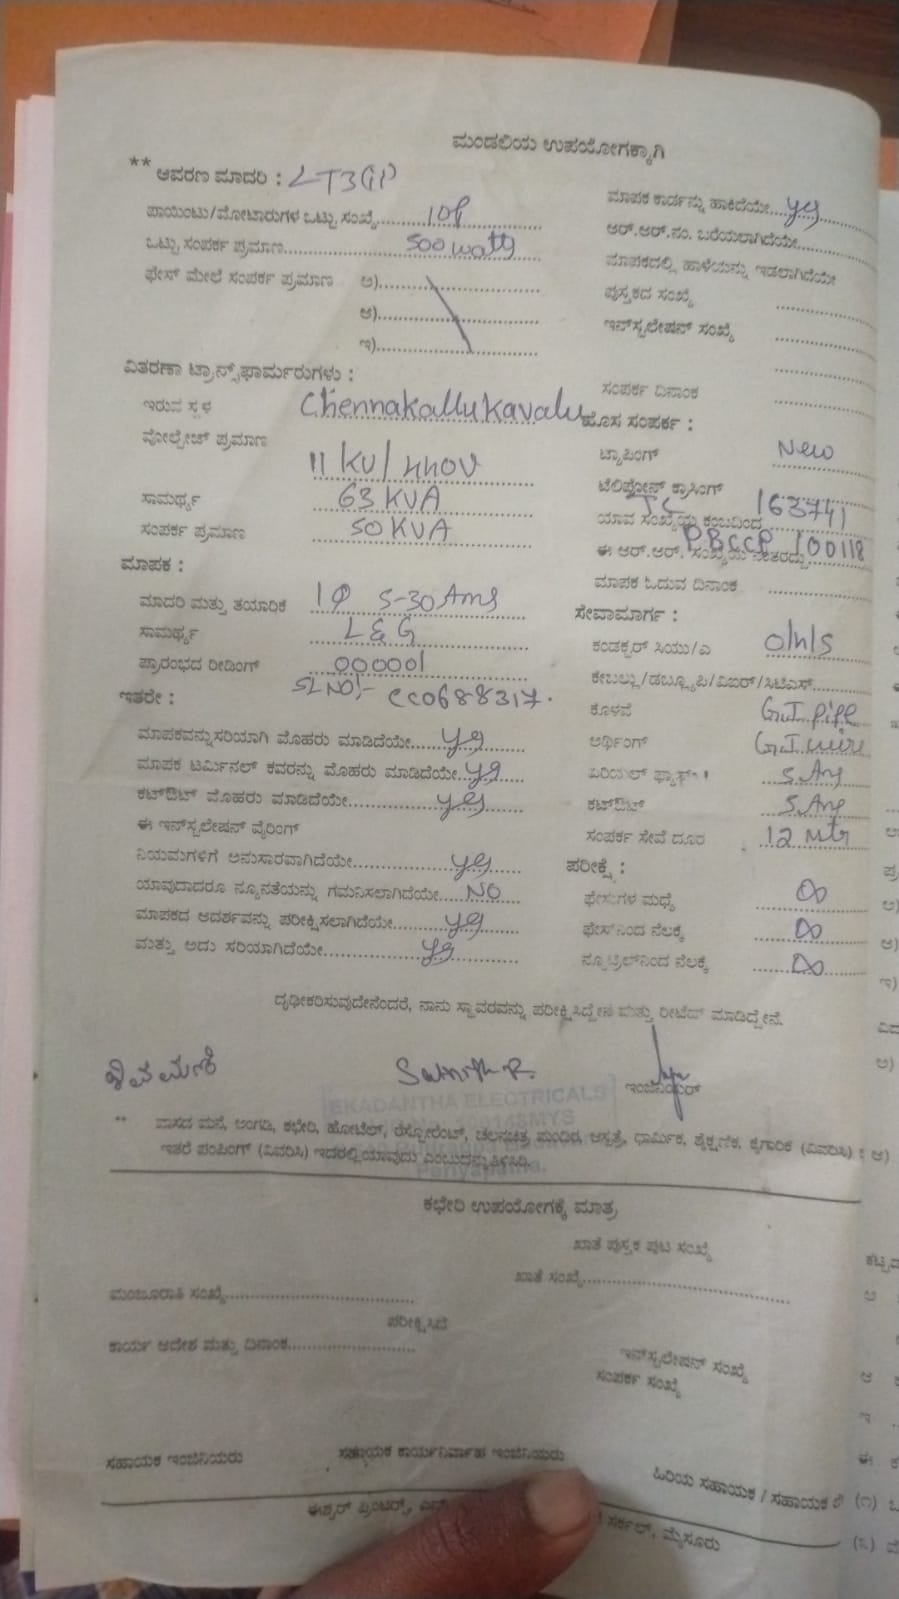 ಮಂಡಲಿಯ ಉಪಯೋಗಕ್ಕಾಗಿ
** ಆವರಣ ಮಾದರಿ : LT3(i)
ಪಾಯಿಂಟು/ಮೋಟಾರುಗಳ ಒಟ್ಟು ಸಂಖ್ಯೆ
ಒಟ್ಟು ಸಂಪರ್ಕ ಪ್ರಮಾಣ 500 watts
ಫೇಸ್ ಮೇಲೆ ಸಂಪರ್ಕ ಪ್ರಮಾಣ ಅ)
ಆ)
ಇ)
ವಿತರಣಾ ಟ್ರಾನ್ಸ್‌ಫಾರ್ಮರುಗಳು :
ಇರುವ ಸ್ಥಳ Chennakallu Kavalu
ವೋಲ್ಟೇಜ್ ಪ್ರಮಾಣ 11 KV/440V
ಸಾಮರ್ಥ್ಯ 63 KVA
ಸಂಪರ್ಕ ಪ್ರಮಾಣ 50 KVA
ಮಾಪಕ :
ಮಾದರಿ ಮತ್ತು ತಯಾರಿಕೆ 1Φ 5-30 Ams
ಸಾಮರ್ಥ್ಯ L&G
ಪ್ರಾರಂಭದ ರೀಡಿಂಗ್ 000001
SL NO/- CC0688317.
ಇತರೇ :
ಮಾಪಕವನ್ನು ಸರಿಯಾಗಿ ಮೊಹರು ಮಾಡಿದೆಯೇ yes
ಮಾಪಕ ಟರ್ಮಿನಲ್ ಕವರನ್ನು ಮೊಹರು ಮಾಡಿದೆಯೇ yes
ಕಟ್‌ಔಟ್ ಮೊಹರು ಮಾಡಿದೆಯೇ yes
ಈ ಇನ್‌ಸ್ಟಲೇಷನ್ ವೈರಿಂಗ್
ನಿಯಮಗಳಿಗೆ ಅನುಸಾರವಾಗಿದೆಯೇ yes
ಯಾವುದಾದರೂ ನ್ಯೂನತೆಯನ್ನು ಗಮನಿಸಲಾಗಿದೆಯೇ NO
ಮಾಪಕದ ಆದರ್ಶವನ್ನು ಪರೀಕ್ಷಿಸಲಾಗಿದೆಯೇ yes
ಮತ್ತು ಅದು ಸರಿಯಾಗಿದೆಯೇ yes
ಮಾಪಕ ಕಾರ್ಡನ್ನು ಹಾಕಿದೆಯೇ yes
ಆರ್.ಆರ್.ನಂ. ಬರೆಯಲಾಗಿದೆಯೇ
ಮಾಪಕದಲ್ಲಿ ಹಾಳೆಯನ್ನು ಇಡಲಾಗಿದೆಯೇ
ಪುಸ್ತಕದ ಸಂಖ್ಯೆ
ಇನ್‌ಸ್ಟಲೇಷನ್ ಸಂಖ್ಯೆ
ಸಂಪರ್ಕ ದಿನಾಂಕ
ಹೊಸ ಸಂಪರ್ಕ :
ಟ್ಯಾಪಿಂಗ್ New
ಟೆಲಿಫೋನ್ ಕ್ರಾಸಿಂಗ್
ಯಾವ ಸಂಖ್ಯೆಯ ಕಂಬದಿಂದ 163741
ಈ ಆರ್.ಆರ್. ಸಂಖ್ಯೆಯ ನಂತರದ್ದು PBCCP 100118
ಮಾಪಕ ಓದುವ ದಿನಾಂಕ
ಸೇವಾಮಾರ್ಗ :
ಕಂಡಕ್ಟರ್ ಸಿಯು/ಎ O/H/S
ಕೇಬಲ್ಲು/ಡಬ್ಲ್ಯೂಪಿ/ವಿಐಆರ್/ಸಿಟಿಎಸ್
ಕೊಳವೆ G.I pipe
ಅರ್ಥಿಂಗ್ G.I wire
ಏರಿಯಲ್ ಫ್ಯೂಸ್ 5 Am
ಕಟ್‌ಔಟ್ 5 Am
ಸಂಪರ್ಕ ಸೇವೆ ದೂರ 12 Mtr
ಪರೀಕ್ಷೆ :
ಫೇಸುಗಳ ಮಧ್ಯೆ ∞
ಫೇಸ್‌ನಿಂದ ನೆಲಕ್ಕೆ ∞
ನ್ಯೂಟ್ರಲ್‌ನಿಂದ ನೆಲಕ್ಕೆ ∞
ದೃಢೀಕರಿಸುವುದೇನೆಂದರೆ, ನಾನು ಸ್ಥಾವರವನ್ನು ಪರೀಕ್ಷಿಸಿದ್ದೇನೆ ಮತ್ತು ರೀಟೆಪ್ ಮಾಡಿದ್ದೇನೆ.
ಶಿವಮಣಿ
ಇಂಜಿನಿಯರ್
EKADANTHA ELECTRICALS
** ವಾಸದ ಮನೆ, ಅಂಗಡಿ, ಕಛೇರಿ, ಹೋಟೆಲ್, ರೆಸ್ಟೋರೆಂಟ್, ಚಲನಚಿತ್ರ ಮಂದಿರ, ಆಸ್ಪತ್ರೆ, ಧಾರ್ಮಿಕ, ಶೈಕ್ಷಣಿಕ, ಕೈಗಾರಿಕ (ವಿವರಿಸಿ)
ಇತರೆ ಪಂಪಿಂಗ್ (ವಿವರಿಸಿ) ಇದರಲ್ಲಿ ಯಾವುದು ಎಂಬುದನ್ನು ತಿಳಿಸಿರಿ.
Periyapatna.
ಕಛೇರಿ ಉಪಯೋಗಕ್ಕೆ ಮಾತ್ರ
ಖಾತೆ ಪುಸ್ತಕ ಪುಟ ಸಂಖ್ಯೆ
ಖಾತೆ ಸಂಖ್ಯೆ
ಮಂಜೂರಾತಿ ಸಂಖ್ಯೆ
ಪರೀಕ್ಷಿಸಿದೆ
ಕಾರ್ಯ ಆದೇಶ ಮತ್ತು ದಿನಾಂಕ
ಇನ್‌ಸ್ಟಲೇಷನ್ ಸಂಖ್ಯೆ
ಸಂಪರ್ಕ ಸಂಖ್ಯೆ
ಸಹಾಯಕ ಇಂಜಿನಿಯರು
ಸಹಾಯಕ ಕಾರ್ಯನಿರ್ವಾಹ ಇಂಜಿನಿಯರು
ಹಿರಿಯ ಸಹಾಯಕ / ಸಹಾಯಕ
ಈಶ್ವರ್ ಪ್ರಿಂಟರ್ಸ್,
ಸರ್ಕಲ್, ಮೈಸೂರು